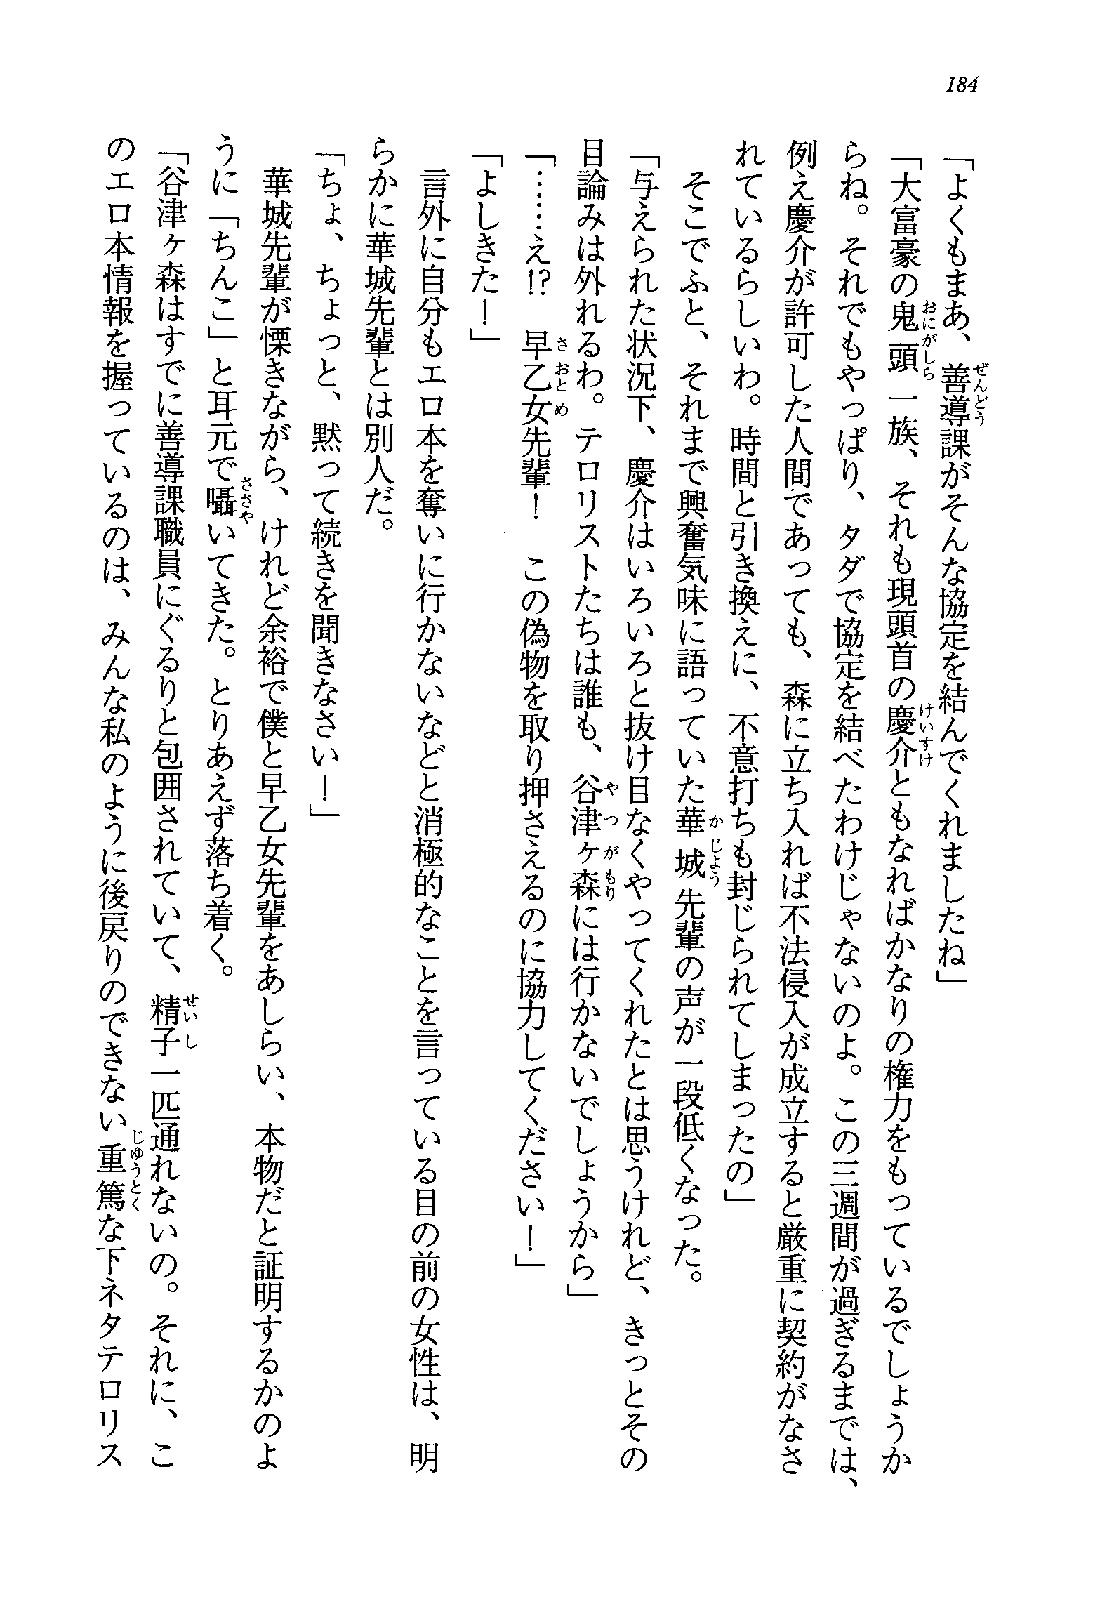 184
「よくもまあ、善導課がそんな協定を結んでくれましたね」
「大富豪の鬼頭一族、それも現頭首の慶介ともなればかなりの権力をもっているでしょうか
らね。それでもやっぱり、タダで協定を結べたわけじゃないのよ。この三週間が過ぎるまでは、
例え慶介が許可した人間であっても、森に立ち入れば不法侵入が成立すると厳重に契約がなさ
れているらしいわ。時間と引き換えに、不意打ちも封じられてしまったの」
そこでふと、それまで興奮気味に語っていた華城先輩の声が一段低くなった。
「与えられた状況下、慶介はいろいろと抜け目なくやってくれたとは思うけれど、きっとその
目論みは外れるわ。テロリストたちは誰も、谷津ヶ森には行かないでしょうから」
「……え!?　早乙女先輩！　この偽物を取り押さえるのに協力してください！」
「よしきた！」
言外に自分もエロ本を奪いに行かないなどと消極的なことを言っている目の前の女性は、明
らかに華城先輩とは別人だ。
「ちょ、ちょっと、黙って続きを聞きなさい！」
華城先輩が慄きながら、けれど余裕で僕と早乙女先輩をあしらい、本物だと証明するかのよ
うに「ちんこ」と耳元で囁いてきた。とりあえず落ち着く。
「谷津ヶ森はすでに善導課職員にぐるりと包囲されていて、精子一匹通れないの。それに、こ
のエロ本情報を握っているのは、みんな私のように後戻りのできない重篤な下ネタテロリス